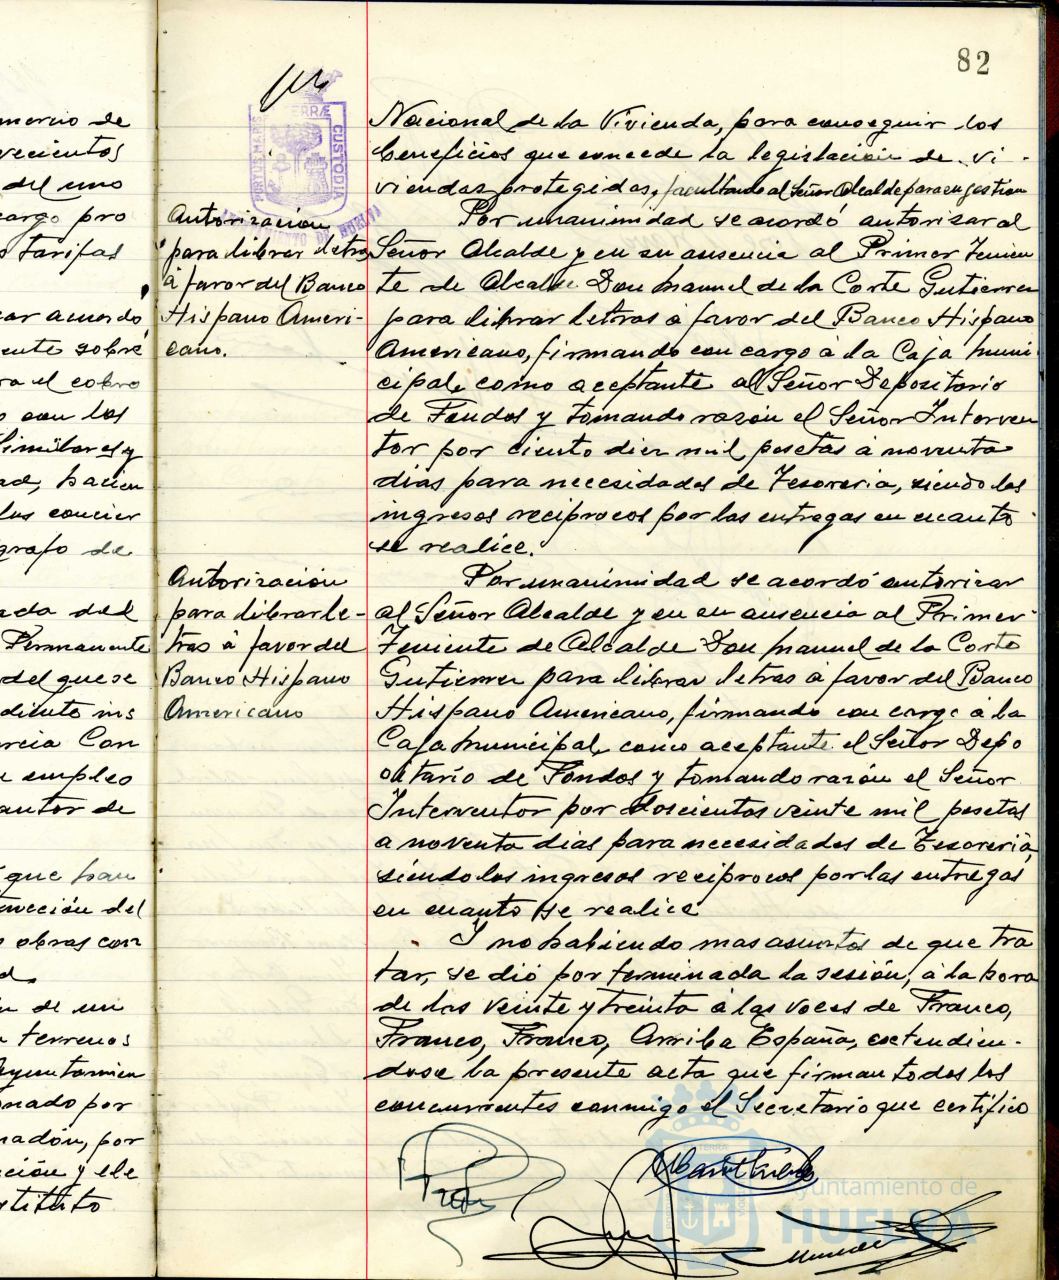 82
mercio de
vecientos
del uno
cargo pro
s tarifas
car acuerdo
ente sobre
ra el cobro
o con los
Similares y
ad, hacien
los concier
grafo de
ada del
Permanente
del que se
dituto ins
rcia Con
u empleo
autor de
que han
rucción del
s obras con
d.
n de un
terrenos
Ayuntamien
onado por
nadón, por
ción y ele
stituto
PORTUS MARIS
TERRÆ
CUSTODIA
AYUNTAMIENTO DE HUELVA
Autorización
para librar letras
á favor del Banco
Hispano Ameri-
cano.
Autorización
para librar le-
tras á favor del
Banco Hispano
Americano
Nacional de la Vivienda, para conseguir los
beneficios que concede la legislación de vi-
viendas protegidas, facultando al Señor Alcalde para su gestion
Por unanimidad se acordó autorizar al
Señor Alcalde y en su ausencia al Primer Tenien
te de Alcalde Don Manuel de la Corte Gutierrez
para librar letras á favor del Banco Hispano
Americano, firmando con cargo á la Caja Muni-
cipal, como aceptante al Señor Depositario
de Fondos y tomando razón el Señor Interven
tor por ciento diez mil pesetas á noventa
dias para necesidades de Tesoreria, siendo los
ingresos reciprocos por las entregas en cuanto
se realice.
Por unanimidad se acordó autorizar
al Señor Alcalde y en su ausencia al Primer
Teniente de Alcalde Don Manuel de la Corte
Gutierrez para librar letras á favor del Banco
Hispano Americano, firmando con cargo á la
Caja Municipal, como aceptante el Señor Depo
sitario de Fondos y tomando razón el Señor
Interventor por doscientos veinte mil pesetas
a noventa dias para necesidades de Tesoreria,
siendo los ingresos reciprocos por las entregas
en cuanto se realice
Y no habiendo mas asuntos de que tra
tar, se dió por terminada la sesión, á la hora
de las veinte y treinta á las voces de Franco,
Franco, Franco, Arriba España, extendien-
dose la presente acta que firman todos los
concurrentes conmigo el Secretario que certifico
TERRA
Ayuntamiento de
HUELVA